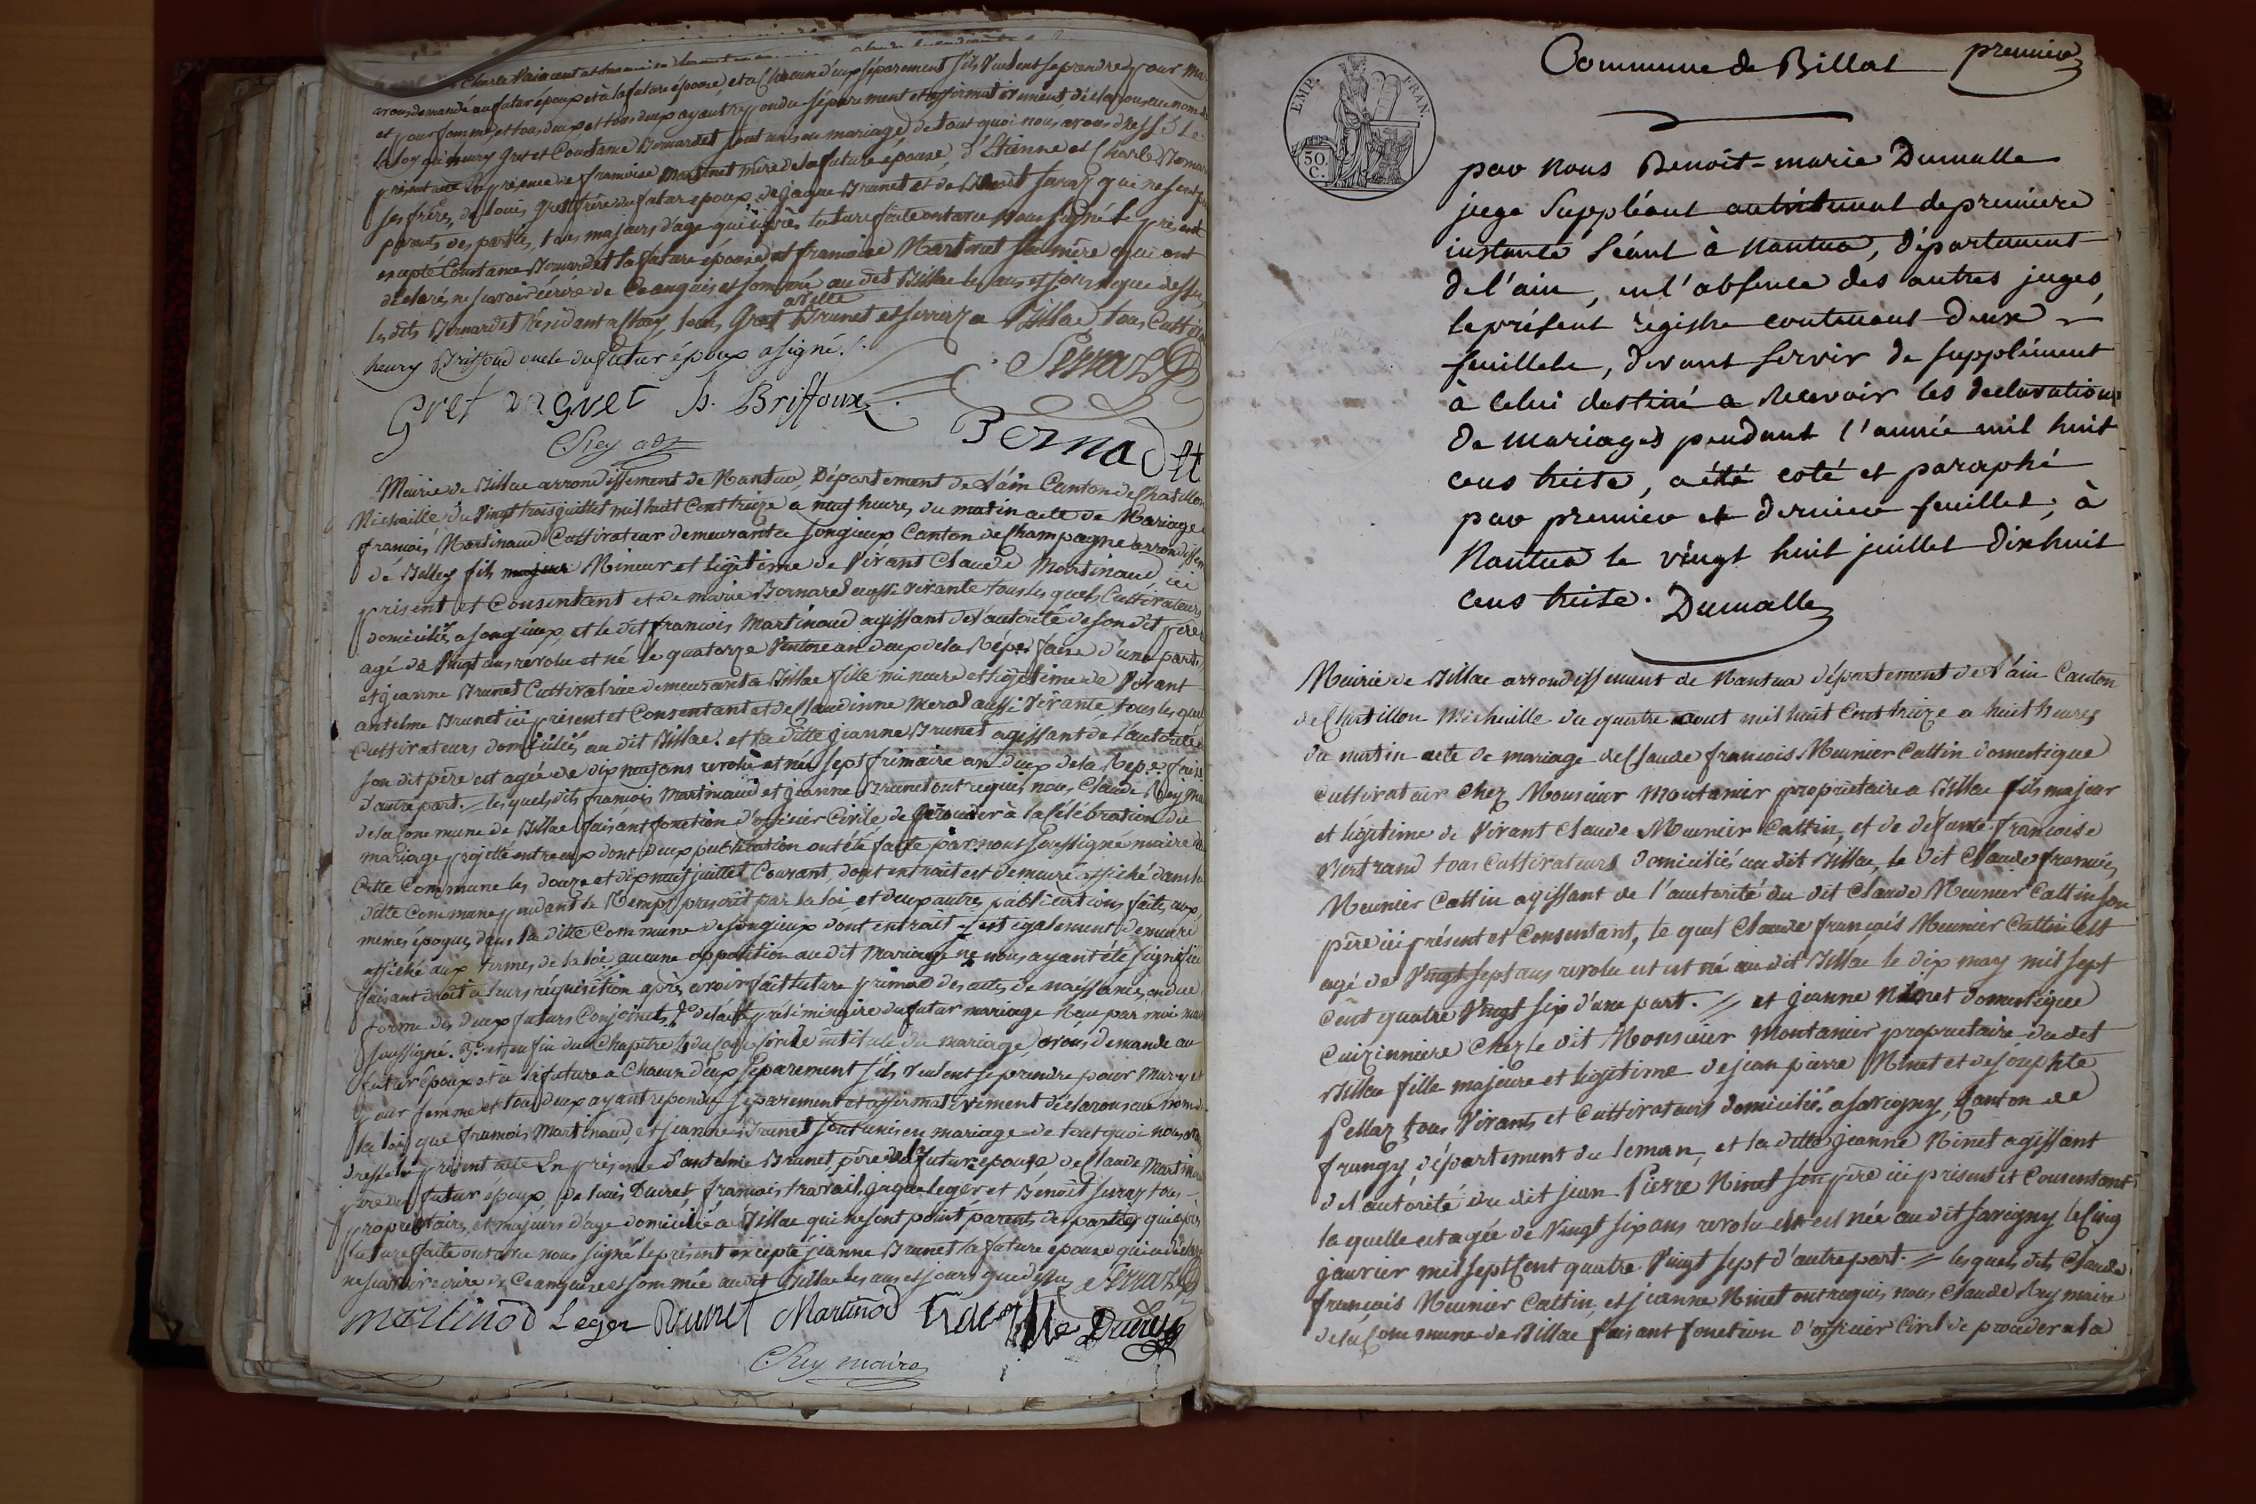 avons demandé au futur époux et à la future épouse, et a Chacun d'eux séparement s'ils veulent se prendre pour Mary
et pour femme, et tous deux ayant repondu séparement et affirmativement, déclarons au nom de
la loy que heury gret et Constance Bornardet sont unis en mariage, de tout quoi nous avons dressé le
présent acte En présence de framoise Martinet mère de la future épouse, d'Etienne et Charle Bornar
ses frères, de louis gret frère du futur époux, de jaque Brunet et de Benoit serraz qui ne sont
parents des parties, tous majeurs d'age qui après lecture faite ont avec nous signé le présent
excepté Constance Bornardet la future épouse et framoise Martinet sa mère qui ont
déclaré ne savoir écrire de Ce anquis et sommé au dit Billac les ans et jours que dessus
les dits Bernardet résidant a, louis Gret Brunet et serraz a Billac, tous Cultiv
heury Briffoud oncle du futur époux a signé ./.
Serraz
Gret gret h. Briffoux
Bernadet
CRey adt
Mairie de Billac arrondissement de Nantua, Département de L'ain Canton de Chatillon
Michaille du Vingt trois juillet mil huit Cent treize a neuf heures du matin acte de Mariage de
framois Martinaud Cultivateur demeurant a songieux Canton de Champagne arrondissem
de Belley fils majeur Mineur et légitime de Vivant Claude Martinaud, ici
présent et Consentant et de marie Bornard aussi vivante tous les quels Cultivateurs
domiciliés a songieux et le dit framois Martinaud agissant de l'autorité de son dit père
agé de Vingt ans revolu et né le quatorze Ventose an deux de la Rép. faise d'une part
et jeanne Brunet Cultivatrice demeurant a Billac fille mineure et légitime de Vivant
antelme Brunet ici présent et Consentant et de Claudinne Merod aussi Vivante, tous les quel
Cultivateurs domiciliés au dit Billac. et la ditte jeanne Brunet agissant de l'autorité de
son dit père est agée de dix neuf ans revolu et née le sept frimaire an deux de la Rep.e faise
d'autre part. = les quels dits framois Martinaud et jeanne Brunet ont requis nous Claude Rey Maire
de la Commune de Billac faisant fonction d'officier Civile de proceder à la Célébration du
mariage projetté entre eux dont deux publication ont été faite par nous soussigné maire de
Cette Commune les douze et dix neuf juillet Courant, dont extrait est demeuré affiché dans la
ditte Commune pendant le Temps prescrit par la loi, et deux autres publications faites aux
memes époques dans la ditte Commune de songieux dont extrait est également demeuré
affiché aux termes de la loi, aucune opposition au dit mariage ne nous ayant été signifiée
faisant droit a leurs réquisition après avoir fait lecture primo des actes de naissances en due
forme des deux futurs Conjoints, 2.e de l'acte préliminaire du futur mariage Reçu par moi maire
soussigné. 3.e et enfin du Chapitre 6 du Code Civile intitulé du mariage, avons demandé au
futur époux et a la future a Chacun d'eux séparement s'ils veulent se prendre pour Mary et
pour femme et tous deux ayant repondu séparement et affirmativement déclarons au nom de
la loi que framois Martinaud, et jeanne Brunet sont unis en mariage de tout quoi nous avons
dressé le présent acte En présence d'antelme Brunet, père de la future épouse de Claude Martinaud
père du futur époux, de louis Ducret, framois travail, jaque Leger et Benoit serraz tous
proprietaires et majeurs d'age domicilié a Billac qui ne sont point parents des parties qui après
lecture faite ont avec nous signé le présent excepté jeanne Brunet la future épouse qui a déclaré
ne savoir écrire de Ce anquise et sommée au dit Billac les ans et jours que dessus Serraz
martinod Leger Brunet Martinod Ducret
CRey maire
Commune de Billat premier
EMP. FRAN.
50. C.
par Nous Benoit-marie Dumalle
juge Suppléant au tribunal de première
instance Séant à Nantua, Département
de l'ain, en l'absence des autres juges,
le présent régistre contenant deux
feuillets, devant servir de supplément
à celui destiné a Recevoir les declarations
de mariages pendant l'année mil huit
cens treize, a été coté et paraphé
par premier et dernier feuillet, à
Nantua le vingt huit juillet dix huit
cens treize. Dumalle
Mairie de Billac arrondissement de Nantua département de L'ain Canton
de Chatillon Michaille du quatre aout mil huit Cent treize a huit heures
du matin acte de mariage de Claude françois Meunier Cattin domestique
cultivateur Chez Monsieur Montanier proprietaire a Billac fils majeur
et légitime de Vivant Claude Meunier Cattin, et de defunte françoise
Bertrand tous Cultivateurs domiciliés au dit Billac, le dit Claude francois
Meunier Cattin agissant de l'autorité du dit Claude Meunier Cattin son
père ici présent et Consentant, le quel Claude françois Meunier Cattin est
agé de Vingt sept ans revolu et est né au dit Billac le dix may mil sept
cent quatre Vingt six d'une part. = et jeanne Ninet domestique
Cuizinniere Chez le dit Monsieur Montanier proprietaire du dit
Billac fille majeure et légitime de jean pierre Ninet et de josephte
Pellaz tous Vivants et Cultivateurs domiciliés a savigny, Canton de
frangy, département du leman, et la ditte jeanne Ninet agissant
de l'autorité du dit jean Pierre Ninet son père ici présent et Consentant
la quelle est agée de Vingt six ans revolu et est née au dit savigny le Cinq
janvier mil sept Cent quatre Vingt sept d'autre part. = les quels dits Claude
françois Meunier Cattin, et jeanne Ninet ont requis nous Claude Rey maire
de la Commune de Billac faisant fonction d'officier Civil de proceder a la